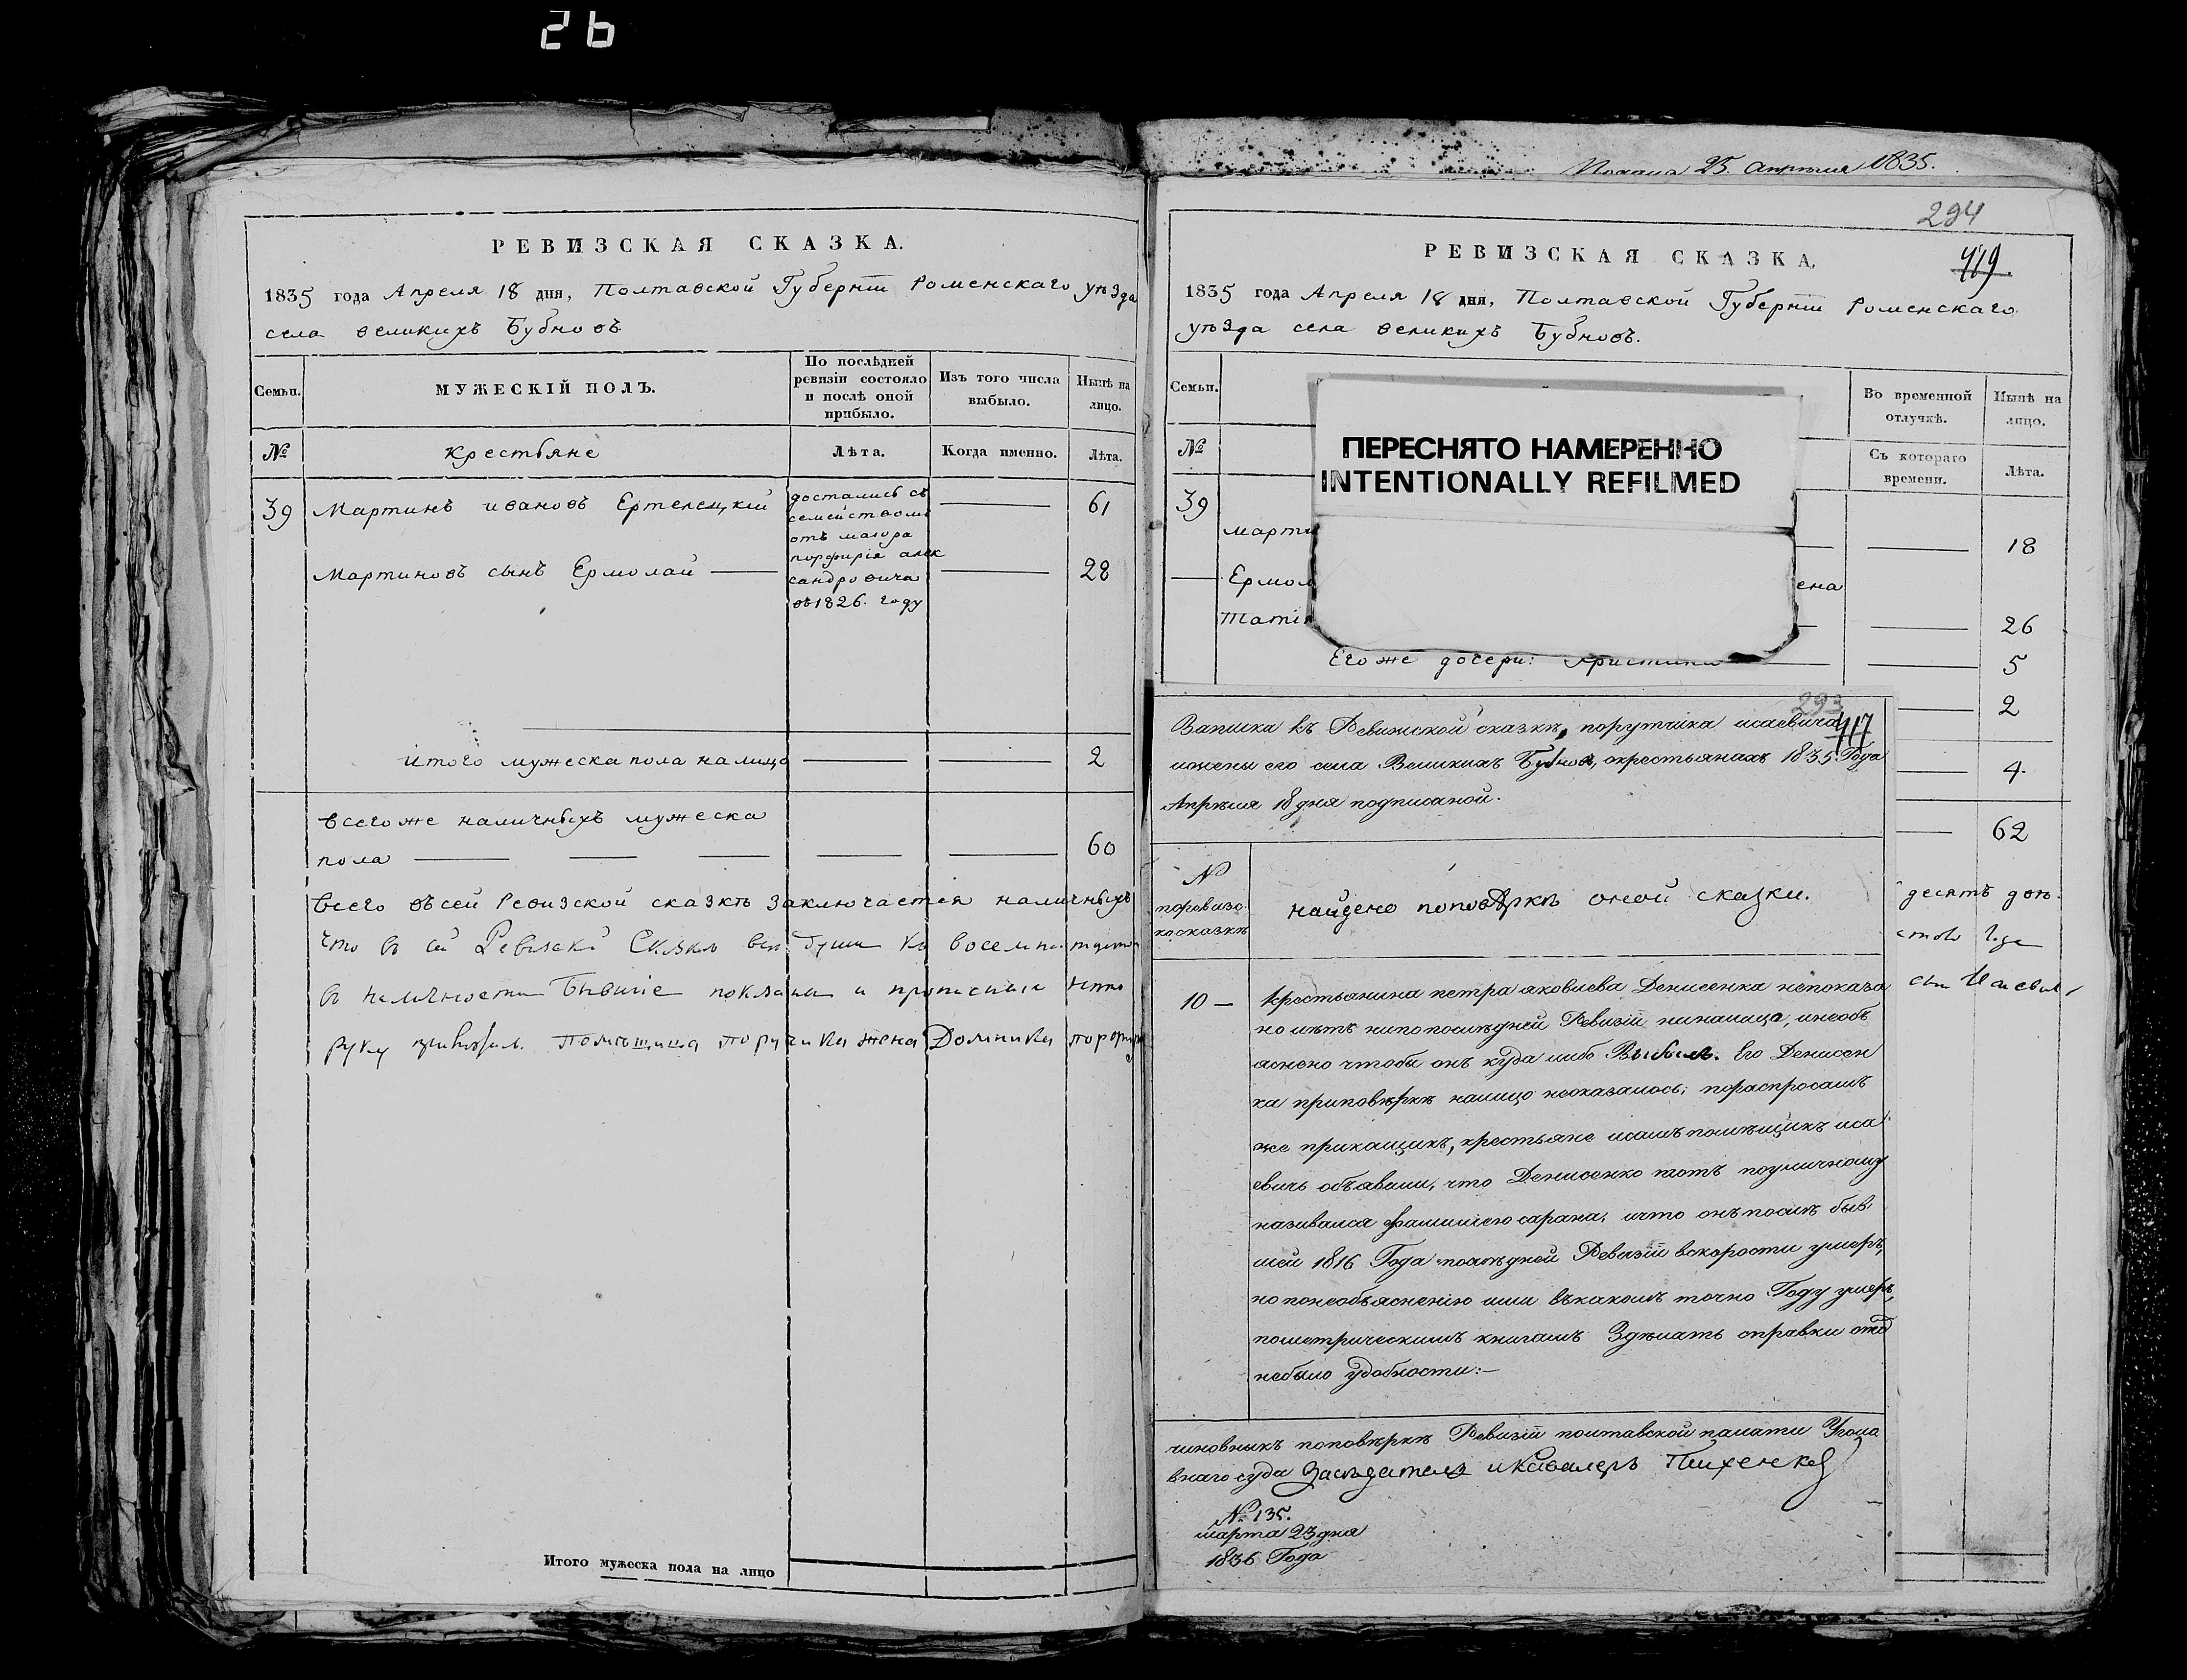 26
РЕВИЗСКАЯ СКАЗКА.
1835 года Апреля 18 дня, Полтавской Губерніи Роменскаго уѣзда
села великихъ Бубновъ
Семьи.
МУЖЕСКІЙ ПОЛЪ.
По послѣдней ревизіи состояло и послѣ оной прибыло.
Изъ того числа выбыло.
Нынѣ на лицо.
№
крестьяне
Лѣта.
Когда именно.
Лѣта.
39
Мартинъ ивановъ
61
достались съ
семействомъ
отъ маіора
порфирія алек
сандровича
въ 1826. году
Мартиновъ сынъ Ермолай
28
итого мужеска пола налицо
2
всегоже наличныхъ мужеска
пола
60
Всего въсей Ревизской сказкѣ заключается наличныхъ
Что в сей
в наличности бывшіе
руку Помѣщица порутчика жена Домникія
Итого мужеска пола на лицо
25 апреля 1835.
294
419
РЕВИЗСКАЯ СКАЗКА.
1835 года Апреля 18 дня, Полтавской Губерніи Роменскаго
уѣзда села великихъ Бубновъ.
Семьи.
Во временной отлучкѣ.
Нынѣ на лицо.
№
Съ котораго времени.
Лѣта.
ПЕРЕСНЯТО НАМЕРЕННО
INTENTIONALLY REFILMED
39
марти
18
Ермол
ена
Таті
26
Егоже дочери: Христина
5
2
4.
62
десять
293
417
Записка къ Ревижской сказкѣ, порутчика исаевича
ижены его села Великихъ Бубновъ, окрестьянахъ 1835 Года
Апрѣля 18 дня подписаной.
№
поревизс
кой сказкѣ
найдено поповѣркѣ оной сказки.
10 —
крестьянина петра яковлева Денисенка непоказа
но лѣтъ нипопослѣдней Ревизіи ниналицо, инеобъ
яснено чтобы онъ куда либо Выбылъ. Его Денисен
ка приповѣркѣ налицо неоказалось; пораспросамъ
же прикащикъ, крестьяне исамъ помѣщикъ иса
евичь объявили, что Денисенко тотъ поуличному
назывался фамилиею сарана, ичто онъ послѣ быв
шей 1816 Года послѣдней Ревизіи вскорости умеръ,
но понеобъясненію ими въкакомъ точно Году умеръ,
пометрическимъ книгамъ Здѣлать справки
небыло удобности:—
чиновникъ поповѣркѣ Ревизіи полтавской палаты Уголо
внаго суда Засѣдатель иКавалеръ
№ 135.
марта 23 дня
1836 Года